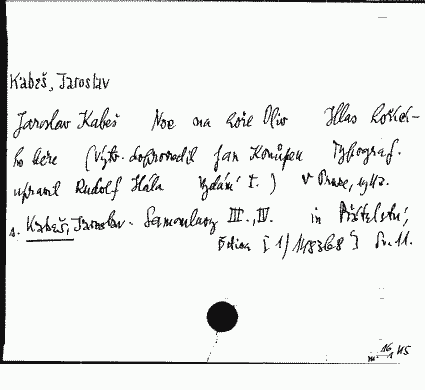 Kabeš, Jaroslav
Jaroslav Kabeš Noc na hoře Oliv Hlas hořící-
ho keře (Výtv. doprovodil Jan Konůpek Typograf.
upravil Rudolf Hála Vydání I.) V Praze,
s. Kabeš, Jaroslav - Samomluvy III., IV. in Přátelství,
Edice [1/148368] Sv. 11.
16 45